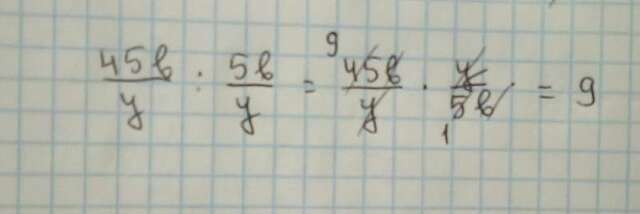 45b/y : 5b/y = 9 45b/y · y/5b 1 = 9